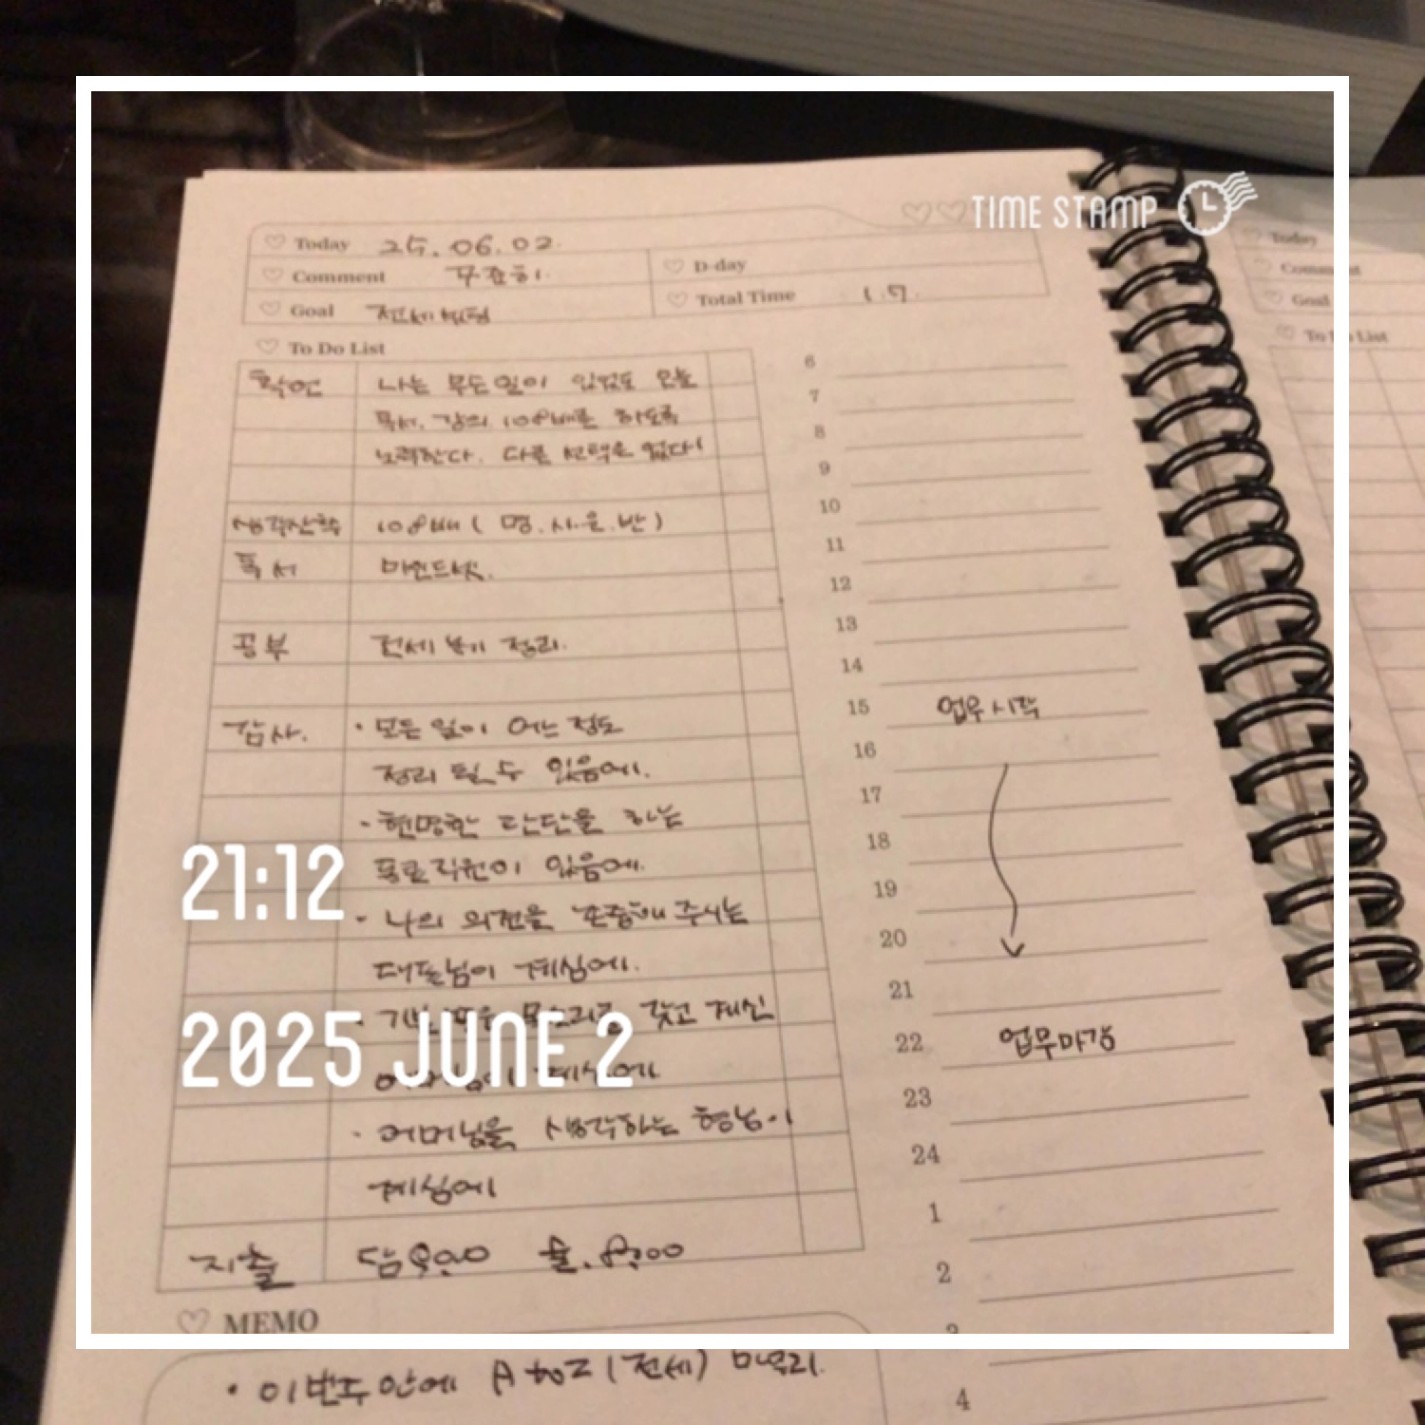 TIME STAMP
Today 25.06.02.
Comment 꾸준히.
D-day
Goal 전세
Total Time 1.7.
To Do List
확언 나는 무슨 일이 있어도 오늘
독서, 강의, 108배를 하도록
노력한다. 다른 선택은 없다!
생주산학 108배 ( 명.사.운.반 )
독서 마인드셋.
공부 전세 정리.
감사. · 모든 일이 어느 정도
정리 될 수 있음에.
· 현명한 판단을 하는
직원이 있음에.
21:12
· 나의 의견을 존중해 주시는
대표님이 계심에.
· 목소리를 갖고 계신
2025 JUNE 2
계심에
· 어머님을 생각하는 형님이
계심에
지출
MEMO
· 이번주 안에 A to Z (전세)
6
7
8
9
10
11
12
13
14
15 업무 시작
16
17
18
19
20
21
22 업무마감
23
24
1
2
3
4
Today
Goal